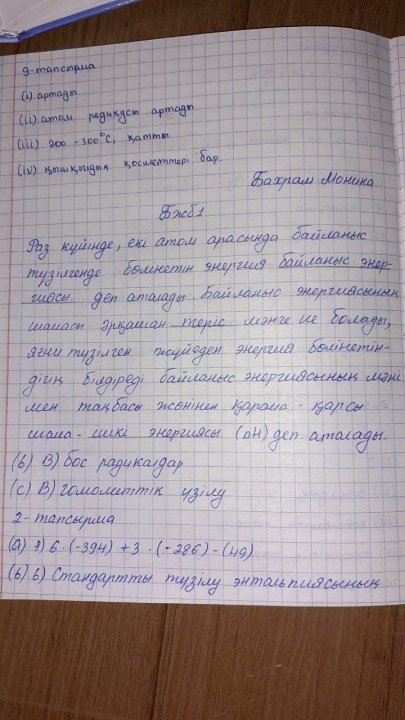 9-тапсырма
(i) артады
(ii) атом радиусы артады.
(iii) 200 - 300°C, қатты
(iv) қышқылдық қосиеттері бар.
Бахрам Моника
Бжб1
Газ күйінде, екі атом арасында байланыс
түзілгенде бөлінетін энергия байланыс энер-
гиясы деп аталады. Байланыс энергиясының
шамасы әрқашан теріс мәнге ие болады,
яғни түзілген жүйеден энергия бөлінетін-
дігің білдіреді байланыс энергиясының мәні
мен таңбасы жөнінен қарама-қарсы
шама - ішкі энергиясы (ΔH) деп аталады.
(b) B) бос радикалдар
(c) B) гомолиттік үзілу
2-тапсырма
(a) 1) 6·(-394) + 3·(-286) - (49)
(b) б) Стандартты түзілу энтальпиясының